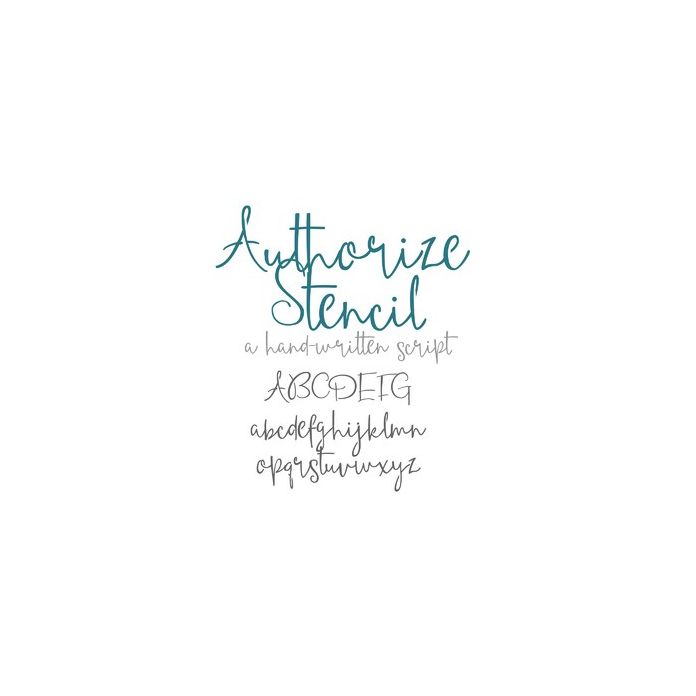 Authorize
Stencil
a hand-written script
ABCDEFG
abcdefghijklmn
opqrstuvwxyz